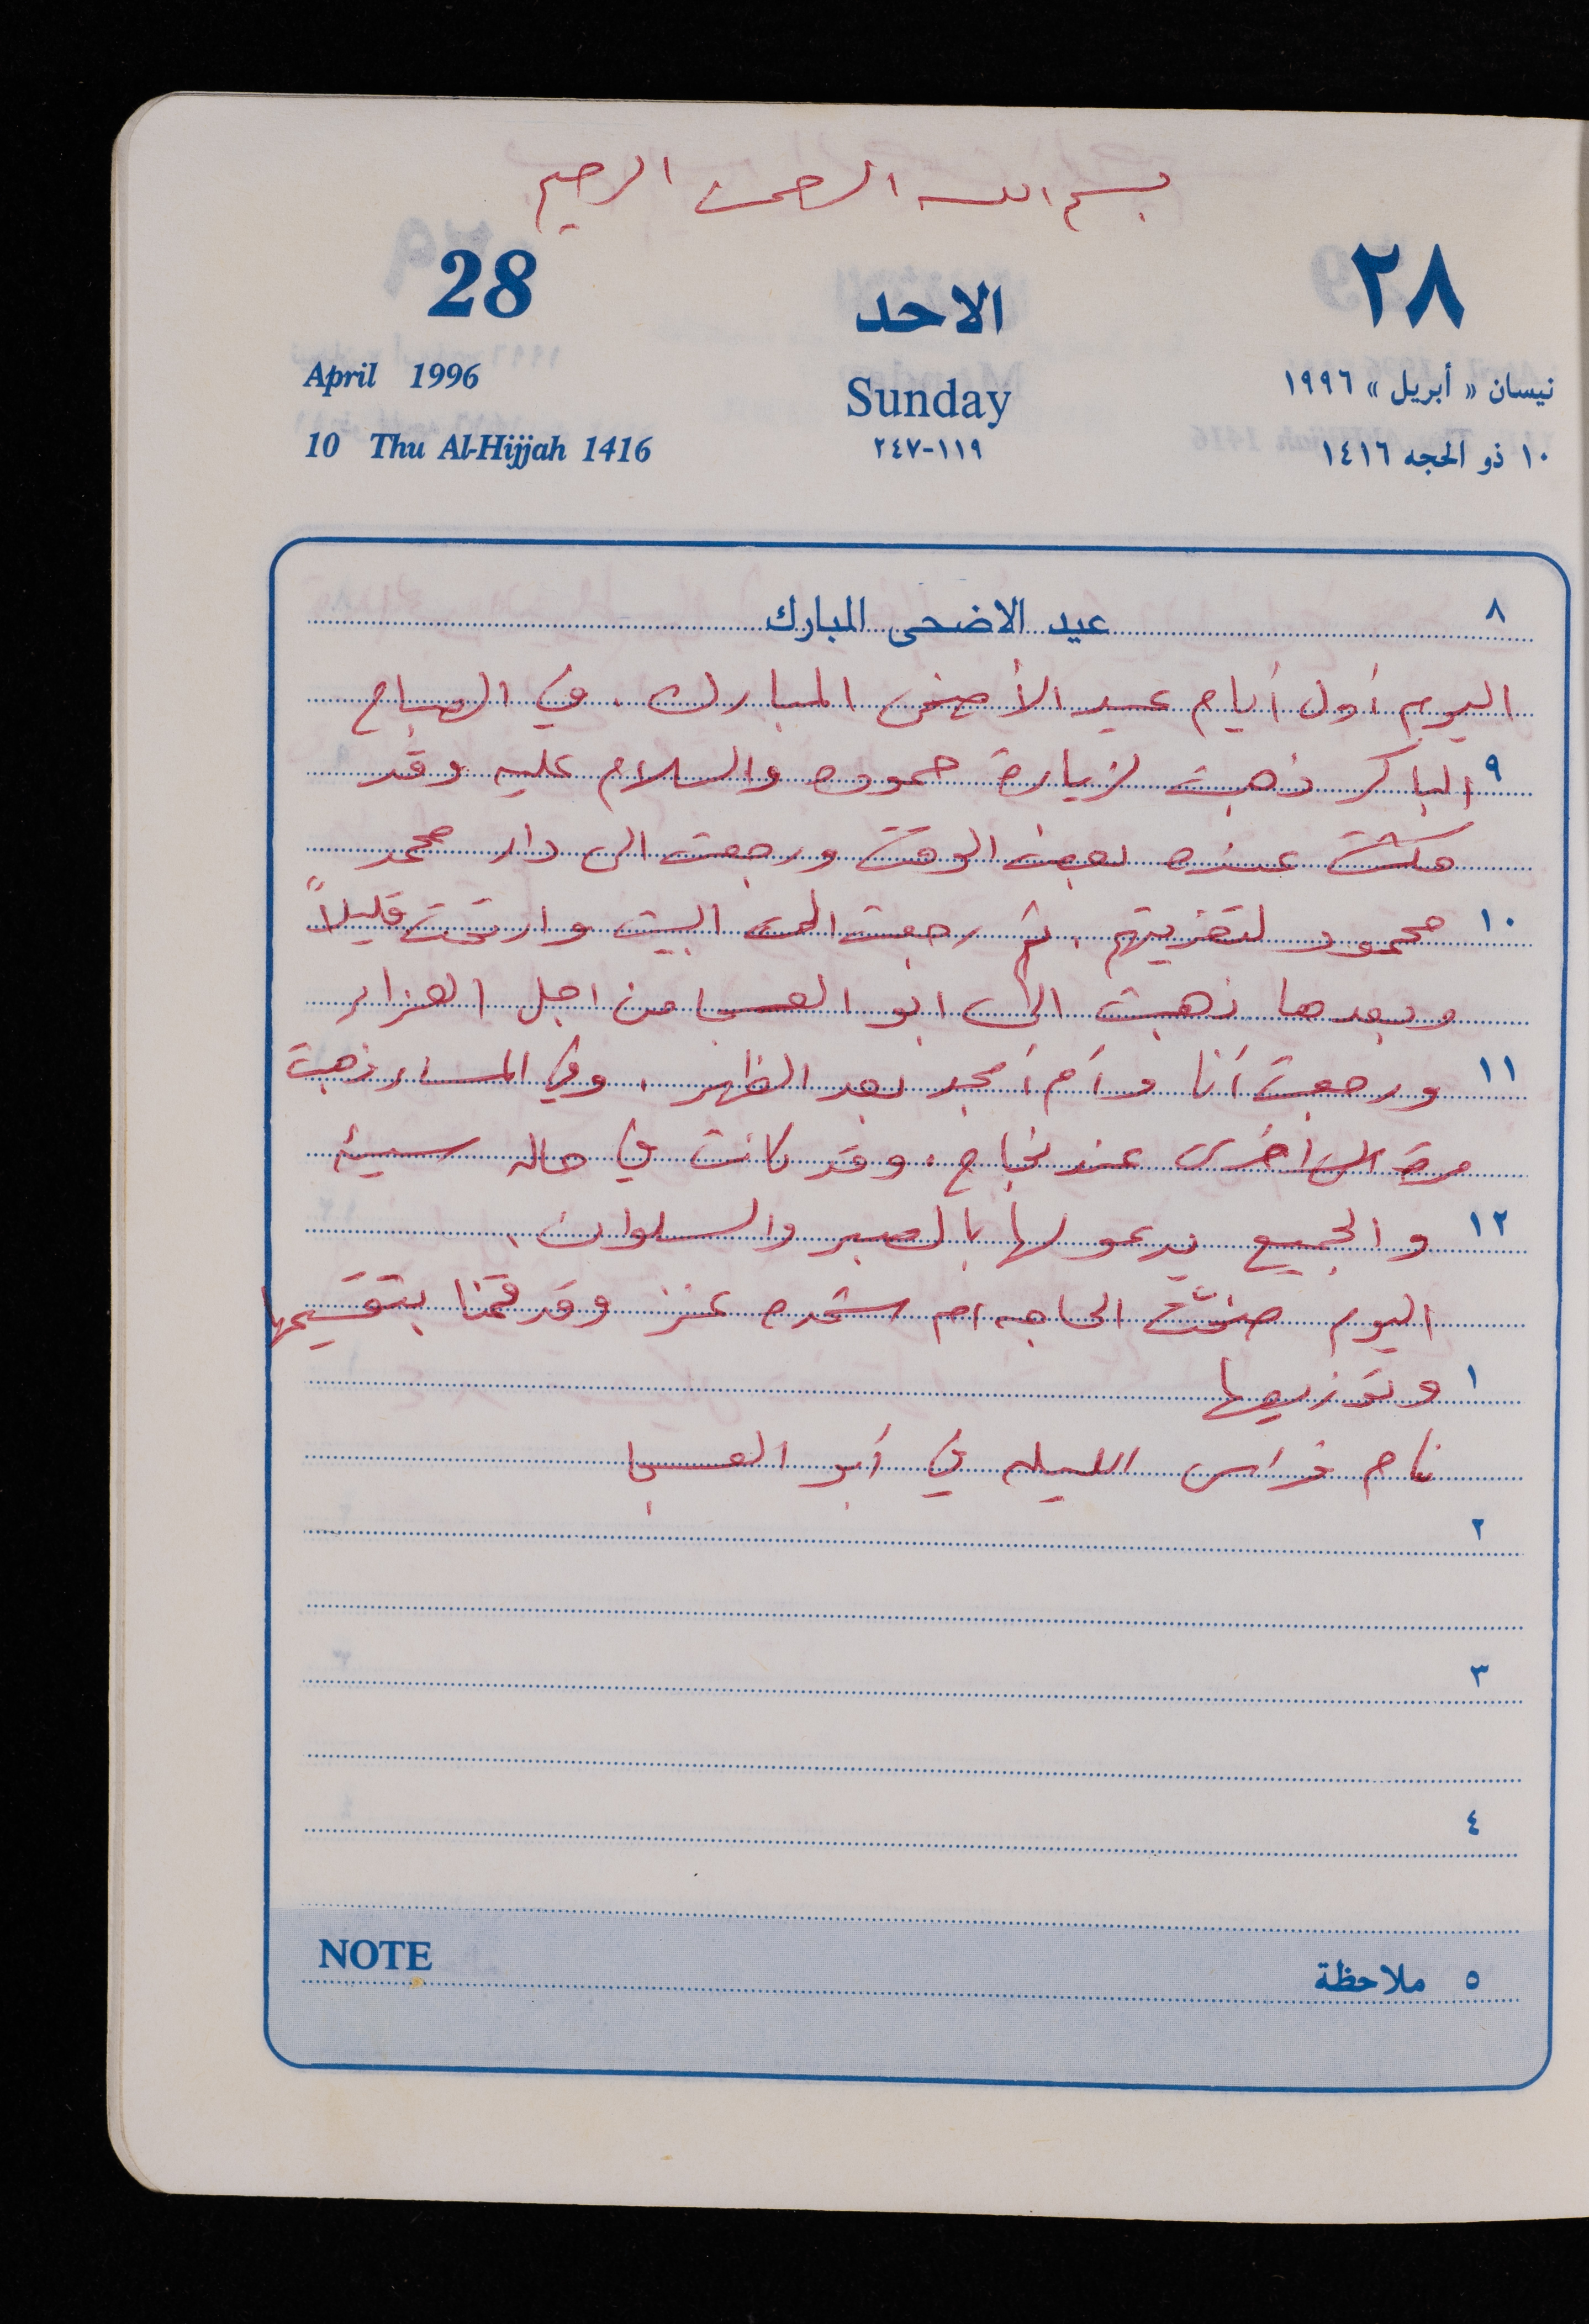 بسم الله الرحمن الرحيم
28 الاحد ٢٨
April 1996 Sunday نيسان « أبريل » ١٩٩٦
10 Thu Al-Hijjah 1416 ٢٤٧-١١٩ ١٠ ذو الحجه ١٤١٦
٨ عيد الاضحى المبارك
اليوم أول أيام عيد الأضحى المبارك. في الصباح
٩ الباكر ذهبت لزيارة حموده والسلام عليه وقد
مكثت عنده بعض الوقت ورجعت الى دار محمد
١٠ محمود لتعزيتهم. ثم رجعت الى البيت وارتحت قليلاً
وبعدها ذهبت الى ابو العسجا من اجل الغذاء
١١ ورجعت أنا وأم أمجد بعد الظهر. وفي المساء ذهبت
مرة أخرى عند نجاح. وقد كانت في حاله سيئه
١٢ والجميع يدعو لها بالصبر والسلوان.
اليوم ضحّت الحاجه ام شحده عنز وقد قمنا بتقسيمها
١ وتوزيعها
نام فراس الليله في أبو العسجا
٢
٣
٤
NOTE ٥ ملاحظة